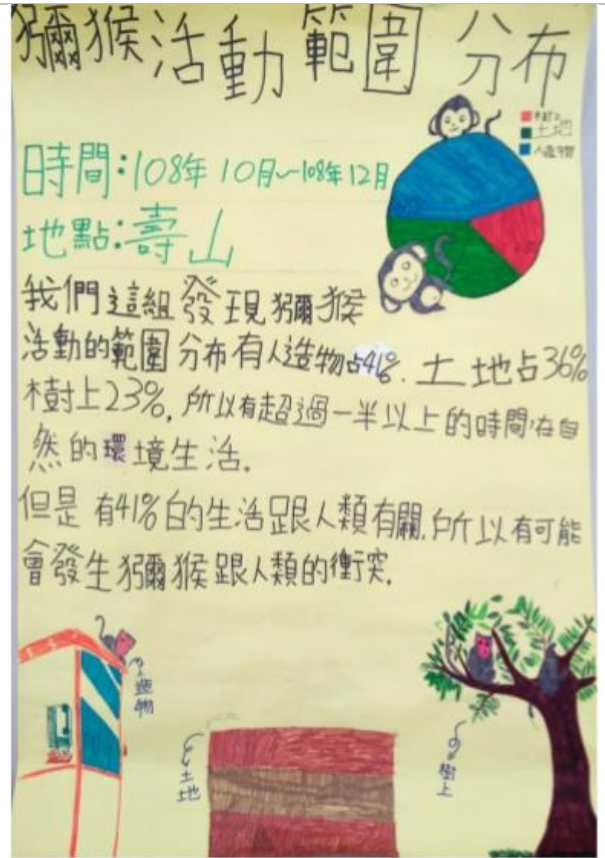 獼猴活動範圍分布
樹上
土地
人造物
時間:108年10月~108年12月
地點:壽山
我們這組發現獼猴
活動的範圍分布有人造物占41%.土地占36%
樹上23%,所以有超過一半以上的時間在自
然的環境生活.
但是有41%的生活跟人類有關,所以有可能
會發生獼猴跟人類的衝突.
人造物
土地
樹上